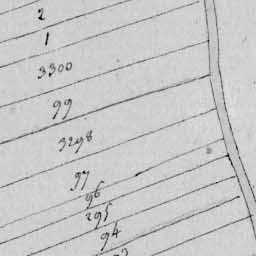 2
1
3300
99
3298
97
96
295
94